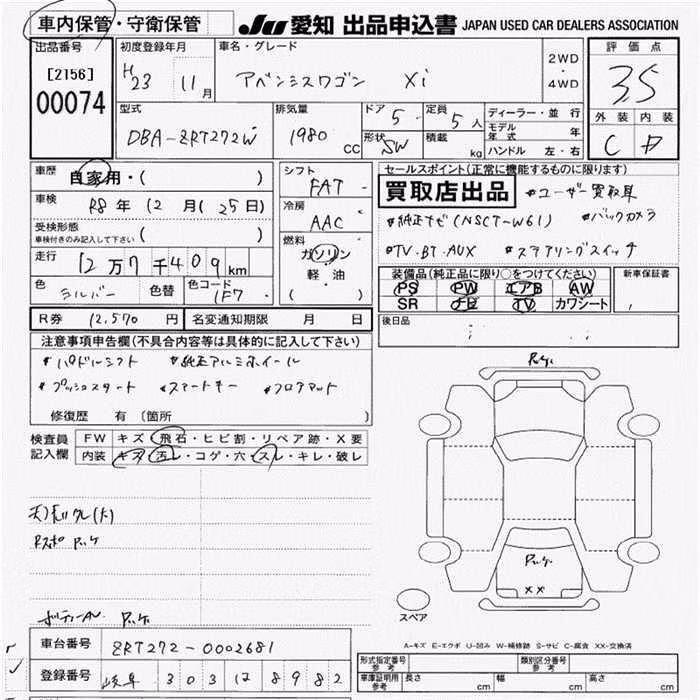 車内保管・守衛保管
JU 愛知 出品申込書 JAPAN USED CAR DEALERS ASSOCIATION
出品番号
[2156]
00074
初度登録年月
H23 11月
車名・グレード
アベンシスワゴン Xi
2WD
・
4WD
評価点
3.5
外装 内装
C D
型式
DBA-ZRT272W
排気量
1980 CC
ドア 5
形状 SW
定員 5人
積載 kg
ディーラー・並行
モデル年式 年
ハンドル 左・右
車歴 自家用・( )
車検 R8年12月(25日)
受検形態
車検付きのみ記入して下さい ( )
走行 12万7千409km
色 シルバー 色替 色コード 1F7
シフト
FAT
冷房
AAC
燃料
ガソリン
軽油
( ・ )
セールスポイント(正常に機能するものに限ります)
買取店出品 #ユーザー買取車
#純正ナビ(NSCT-W61) #バックカメラ
#TV・BT・AUX #ステアリングスイッチ
装備品(純正品に限り○をつけてください)
PS PW エアB AW
SR ナビ TV カワシート
新車保証書
後日品
R券 12,570円 名変通知期限 月 日
注意事項申告欄(不具合内容等は具体的に記入して下さい)
#パドルシフト #純正アルミホイール
#プッシュスタート #スマートキー #フロアマット
修復歴 有(箇所 )
検査員記入欄
FW キズ・飛石・ヒビ割・リペア跡・X要
内装 キズ・汚レ・コゲ・穴・スレ・キレ・破レ
スペア
A-キズ E-エクボ U-凹み W-補修跡 S-サビ C-腐食 XX-交換済
車台番号 ZRT272-0002681
登録番号 岐阜 303 17 8982
形式指定番号 参考
類別区分番号 参考
車庫証明用 参考 長さ cm 幅 cm 高さ cm
XX